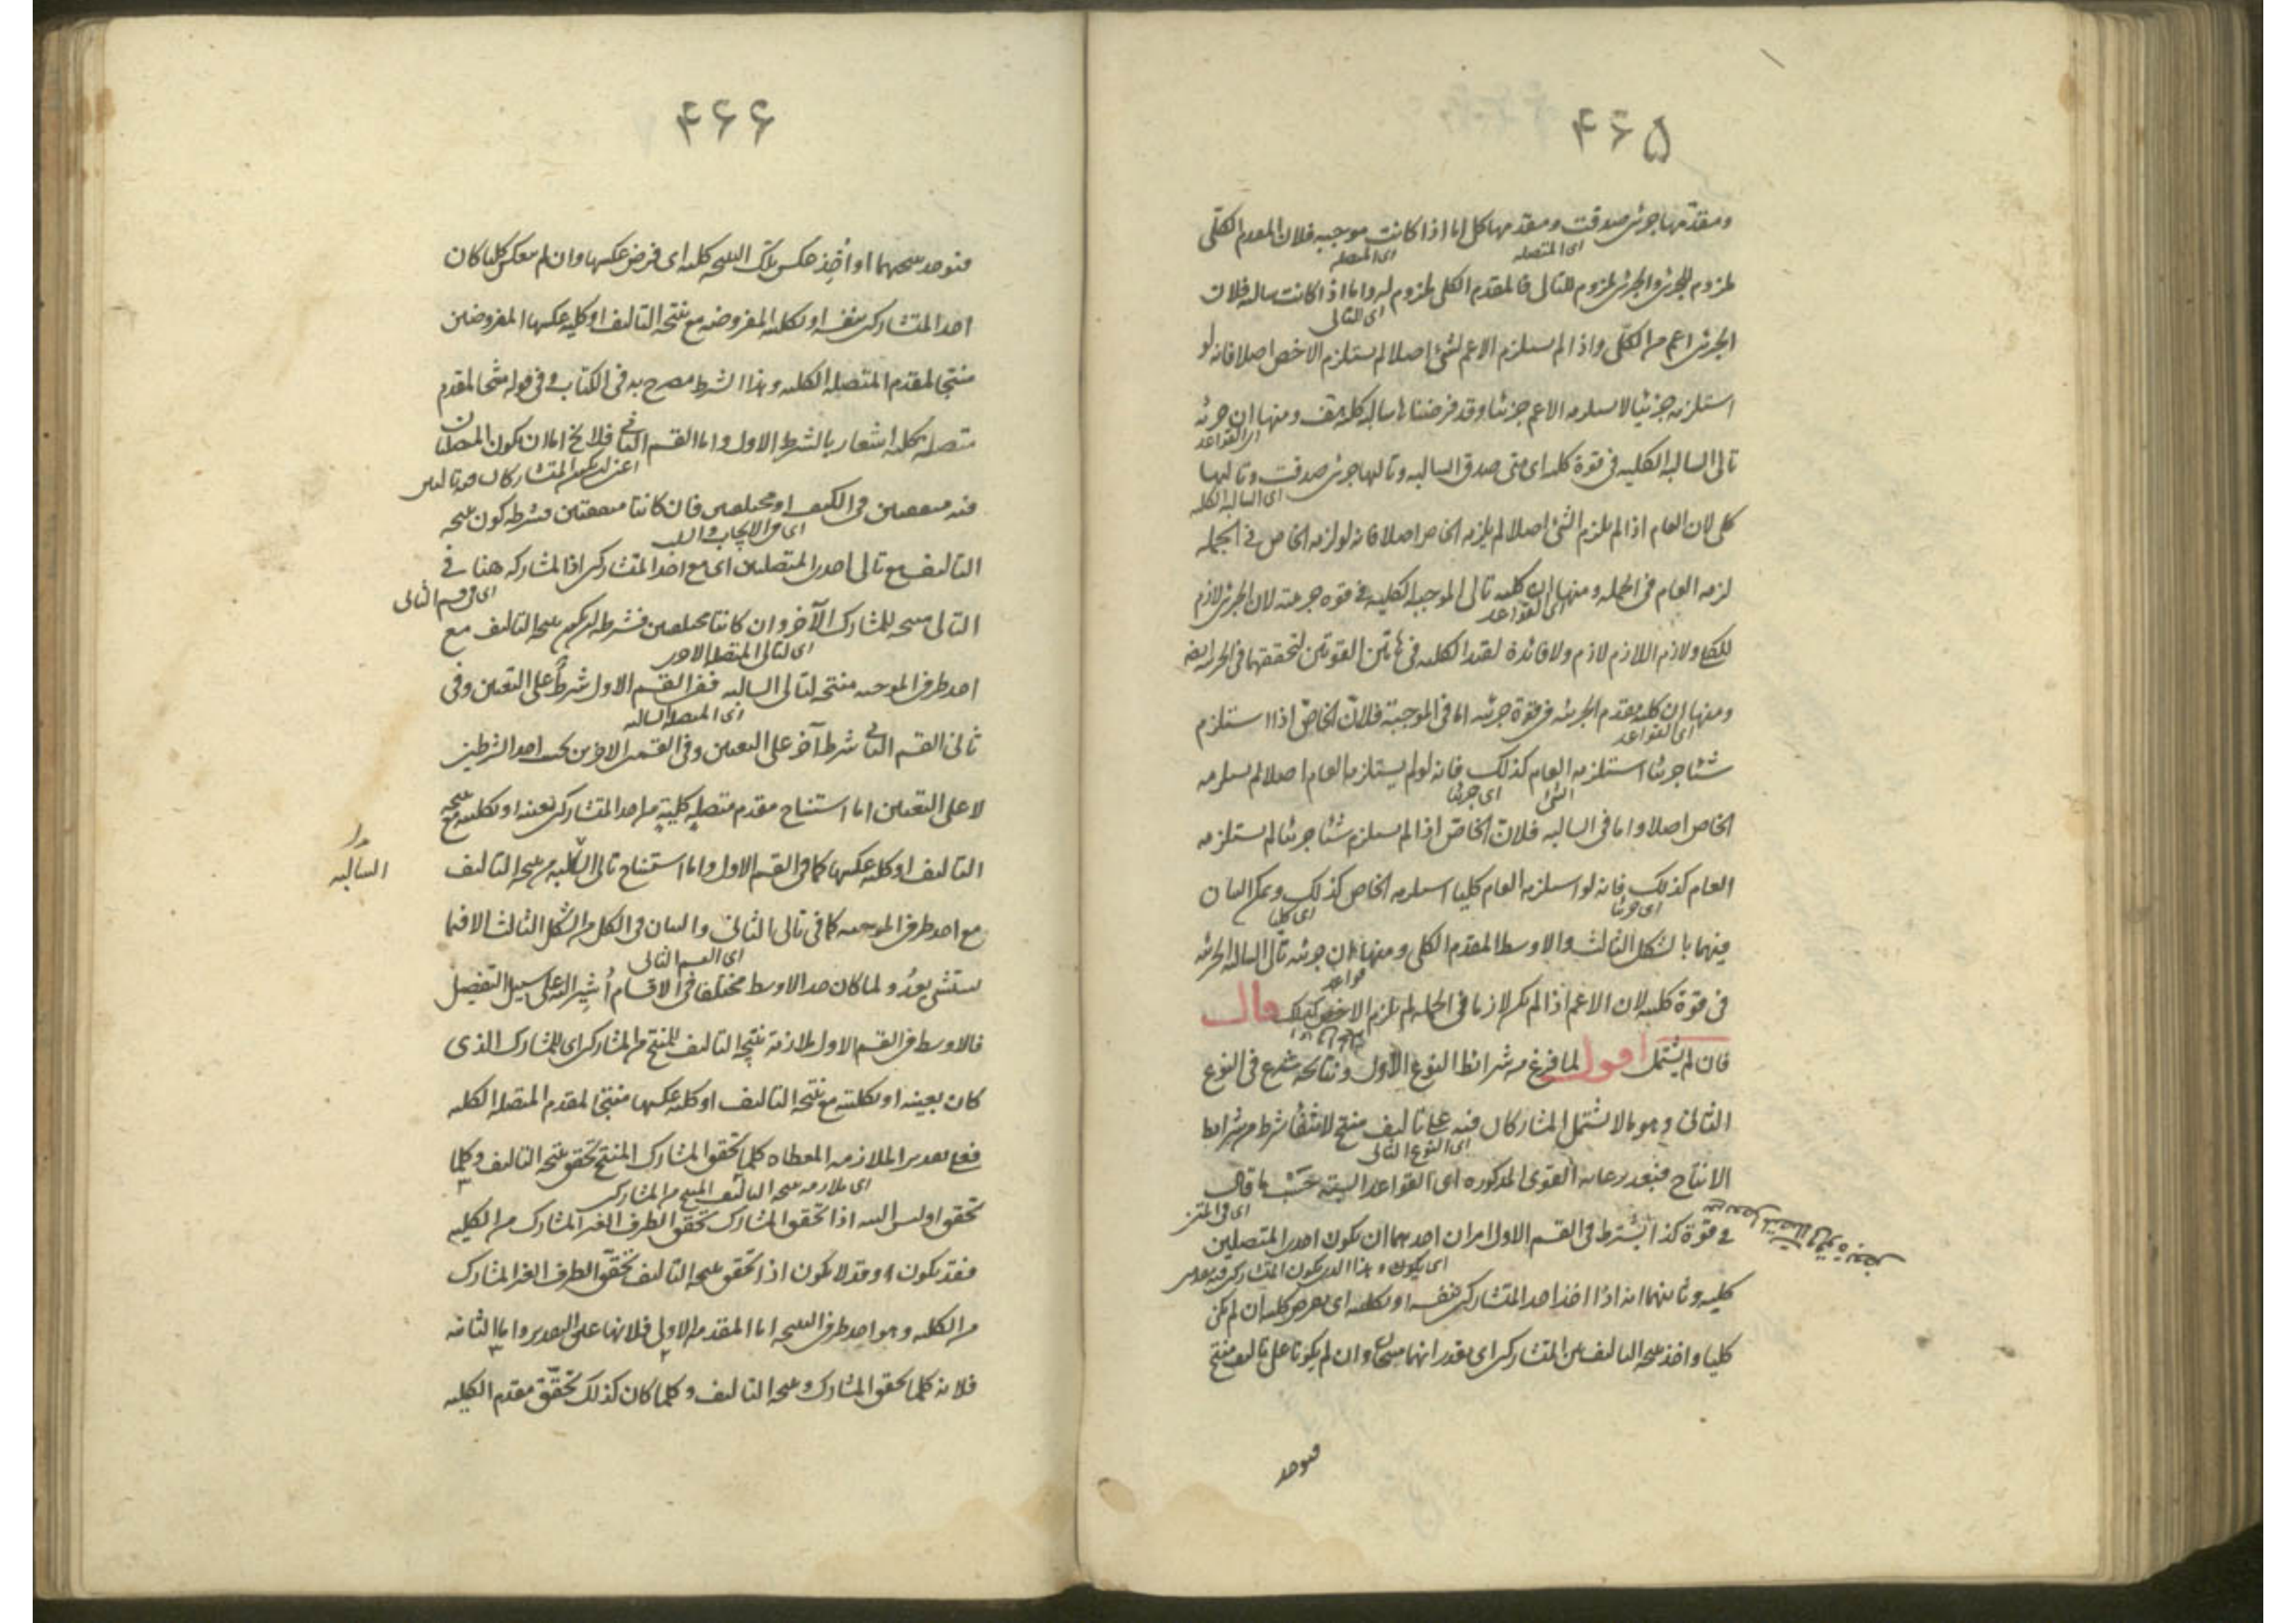 ۴۶۵
ومقدمها جزئى صدقت ومقدمها كلى اما اذا كانت موجبه فلان المقدم الكلّى
اى المتصله
اى المتصله
ملزوم للجزئى والجزئى ملزوم للتالى فالمقدم الكلى ملزوم له واما اذا كانت سالبه فلان
اى للتالى
الجزئى اعم من الكلّى واذا لم يستلزم الاعم لشئ اصلا لم يستلزم الاخص اصلا فانه لو
استلزمه جزئيا لاستلزمه الاعم جزئيا وقد فرضناها سالبه كليه هف ومنها ان جزئيه
اى القواعد
تالى السالبه الكليه فى قوة كليه اى متى صدق السالبه وتاليها جزئى صدقت وتاليها
اى السالبه الكليه
كلى لان العام اذا لم يلزم الشئ اصلا لم يلزمه الخاص اصلا فانه لو لزمه الخاص فى الجمله
لزمه العام فى الجمله ومنها ان كليه تالى الموجبه الكليه فى قوه جزئيته لان الجزئى لازم
اى القواعد
للكلى ولازم اللازم لازم ولا فائدة لقيد الكليه فى هاتين القوتين لتحققهما فى الجزئيه ايضا
ومنها ان كليه مقدم الجزئيه فى قوة جزئيه اما فى الموجبة فلانّ الخاصّ اذا استلزم
اى القواعد
شيئا جزئيا استلزمه العام كذلك فانه لو لم يستلزمه العام اصلا لم يستلزمه
الشئ
اى جزئيا
الخاص اصلا واما فى السالبه فلانّ الخاصّ اذا لم يستلزم شيئا جزئيا لم يستلزمه
العام كذلك فانه لو استلزمه العام كليا استلزمه الخاص كذلك ويمكن البيان
اى جزئيا
اى كليا
فيهما بالشكل الثالث والاوسط المقدم الكلى ومنها ان جزئيه تالى السالبه الجزئيه
قواعد
فى قوة كليته لان الاعم اذا لم يكن لازما فى الجمله لم يلزم الاخص كذلك قال
فان لم يشتمل اقول لما فرغ من شرائط النوع الاول ونتائجه شرع فى النوع
الثانى وهو ما لا يشتمل المتشاركان فيه على تاليف منتج لانتفاء شرط من شرائط
اى النوع الثانى
الانتاج فبعد رعايه القوى المذكوره اى القواعد الستة حَسْبَ ما قال
اى فى المتن
فى قوة كذا يشترط فى القسم الاول امران احدهما ان يكون احدى المتصلتين
كليه وثانيهما انه اذا اخذ احد المتشاركين بنفسه او بكليته اى بفرض كليه ان لم يكن
كليا واخذ نتيجه التاليف من المتشاركين اى يقدر انهما منتجان وان لم يكونا على تاليف منتج
فتوجد
۴۶۶
فتوجد نتيجتهما او أُخِذ عكس تلك النتيجه كليه اى فرض عكسها وان لم ينعكس كليا كان
احد المتشاركين بنفسه او بكليته المفروضه مع نتيجه التاليف او كليه عكسها المفروضين
منتجا لمقدم المتصله الكليه وهذا الشرط مصرح به فى الكتاب وفى قوله منتجا لمقدم
متصلة كليه اشعار بالشرط الاول واما القسم الثانى فلا يخ اما ان يكون المتصلتان
فيه متفقتين فى الكيف او مختلفتين فان كانتا متفقتين فشرطه كون نتيجه
اى فى الايجاب والسلب
التاليف مع تالى احدى المتصلتين اى مع احد المتشاركين اذ المشاركه هنا فى
اى فى قسم الثانى
التالى منتجه للمشارك الآخر وان كانتا مختلفتين فشرطه ان يكون نتيجه التاليف مع
اى لتالى المتصله الاخرى
احد طرفى الموجبه منتجه لتالى السالبه ففى القسم الاول شرطٌ على التعيين وفى
اى المتصله السالبه
ثانى القسم الثانى شرط آخر على التعيين وفى القسمين الاخرين يجب احد الشرطين
لا على التعيين اما استنتاج مقدم متصلةٍ كليةٍ من احد المتشاركين بعينه او بكليته مع نتيجه
التاليف او كليه عكسها كما فى القسم الاول واما استنتاج تالى الكليه من نتيجه التاليف
السالبه
مع احد طرفى الموجبه كما فى تالى الثانى والبيان فى الكل من الشكل الثالث الا فيما
اى القسم الثانى
يستثنى بعدُ ولما كان حد الاوسط مختلفا فى الاقسام أُشير اليه على سبيل التفصيل
فالاوسط فى القسم الاول ملازمة نتيجه التاليف للمنتج من المتشاركين اى للمشارك الذى
كان بعينه او بكليته مع نتيجه التاليف او كليه عكسها منتجا لمقدم المتصله الكليه
فعلى تقدير الملازمه المعطاه كلما تحقق المشارك المنتج تحقق نتيجه التاليف وكلما
اى ملازمه نتيجه التاليف المنتج من المتشاركين
تحقق او ليس البته اذا تحقق المشارك تحقق الطرف الغير المشارك من الكليه
فقد يكون او قد لا يكون اذا تحقق نتيجه التاليف تحقق الطرف الغير المشارك
من الكليه وهو احد طرفى النتيجه اما المقدمه الاولى فلانها على التقدير واما الثانيه
فلانه كلما تحقق المشارك ونتيجه التاليف وكلما كان كذلك تحقق مقدم الكليه